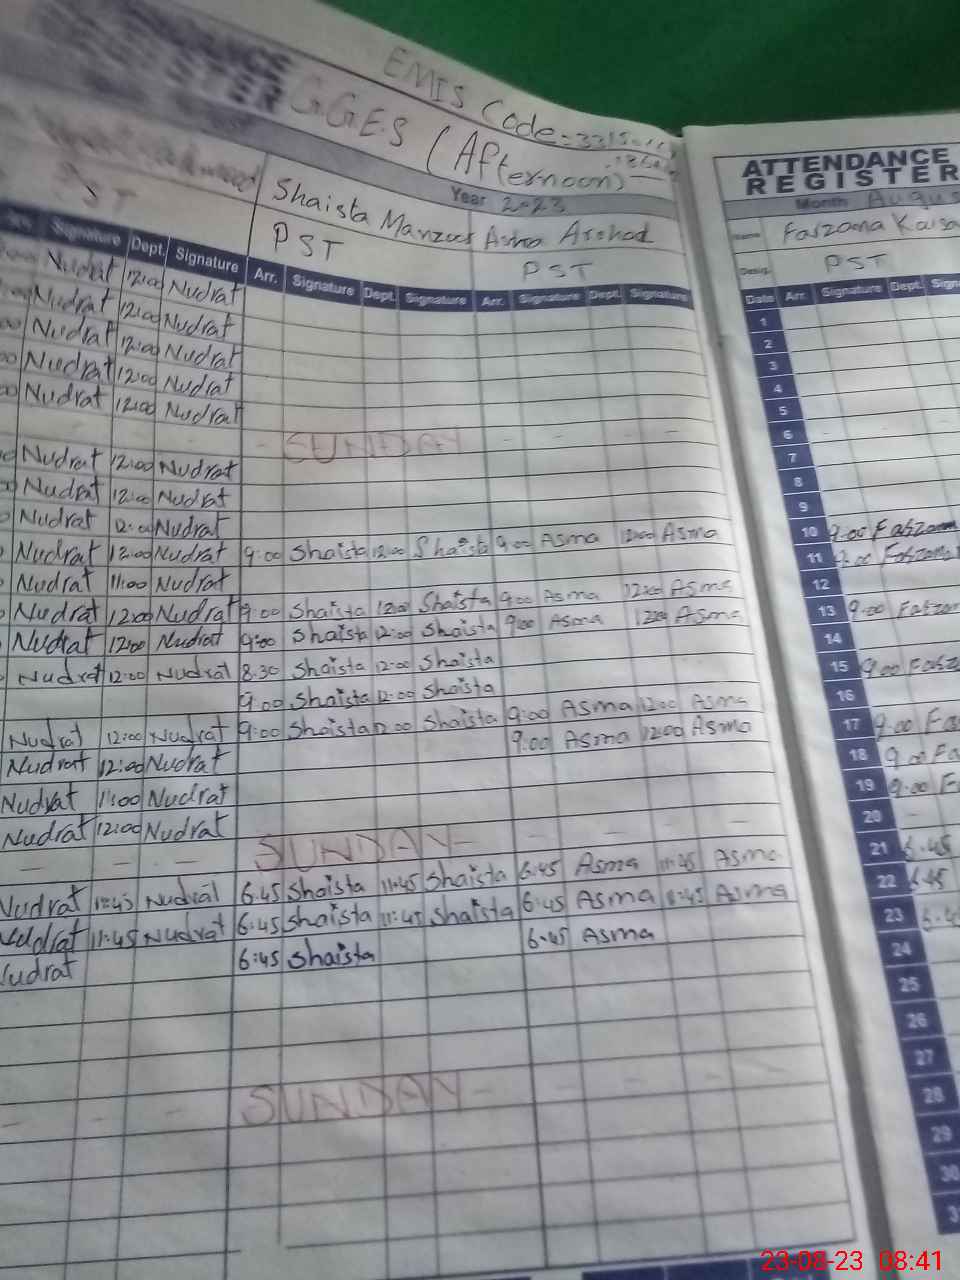 EMIS Code = 
GGES (Afternoon)
Year 2023
Shaista Manzoor Asma Arshad
PST
PST
PST
Signature Dept. Signature Arr. Signature Dept. Signature Arr. Signature Dept. Signature
Nudrat 12:00 Nudrat
Nudrat 12:00 Nudrat
Nudrat 12:00 Nudrat
Nudrat 12:00 Nudrat
Nudrat 12:00 Nudrat
- SUNDAY - - - -
Nudrat 12:00 Nudrat
Nudrat 12:00 Nudrat
Nudrat 12:00 Nudrat
Nudrat 12:00 Nudrat 9:00 Shaista 12:00 Shaista 9:00 Asma 12:00 Asma
Nudrat 11:00 Nudrat
Nudrat 12:00 Nudrat 9:00 Shaista 12:00 Shaista 9:00 Asma 12:00 Asma
Nudrat 12:00 Nudrat 9:00 Shaista 12:00 Shaista 9:00 Asma 12:00 Asma
Nudrat 12:00 Nudrat 8:30 Shaista 12:00 Shaista
9:00 Shaista 12:00 Shaista
Nudrat 12:00 Nudrat 9:00 Shaista 12:00 Shaista 9:00 Asma 12:00 Asma
Nudrat 12:00 Nudrat 9:00 Asma 12:00 Asma
Nudrat 11:00 Nudrat
Nudrat 12:00 Nudrat
- - - SUNDAY - - - -
Nudrat 11:45 Nudrat 6:45 Shaista 11:45 Shaista 6:45 Asma 11:45 Asma
Nudrat 11:45 Nudrat 6:45 Shaista 11:45 Shaista 6:45 Asma 11:45 Asma
Nudrat 6:45 Shaista 6:45 Asma
- - - SUNDAY - - - - -
ATTENDANCE
REGISTER
Month
Name Farzana
Desig. PST
Date Arr. Signature Dept.
1
2
3
4
5
6
7
8
9
10 9:00 Farzana
11 9:00 Farzana
12
13 9:00 Farzana
14
15 9:00
16
17 9:00
18 9:00
19 9:00
20 -
21 6:45
22 6:45
23
24
25
26
27
28
29
30
23-08-23 08:41